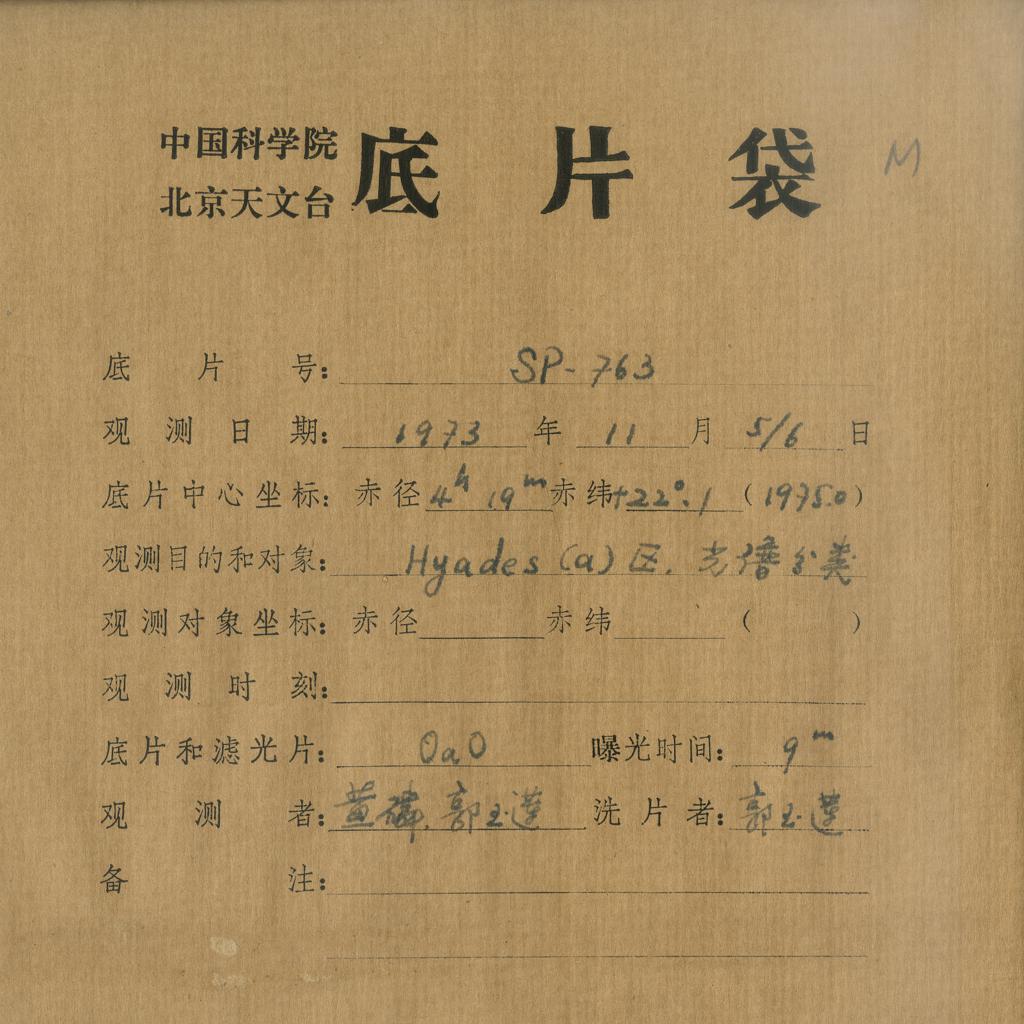 中国科学院
北京天文台
底片袋 M
底片号: SP-763
观测日期: 1973 年 11 月 5/6 日
底片中心坐标: 赤径 4h 19m 赤纬 +22°.1 (1975.0)
观测目的和对象: Hyades (a) 区. 光谱分类
观测对象坐标: 赤径 赤纬 ( )
观测时刻:
底片和滤光片: OaO 曝光时间: 9m
观测者: 黄磷. 郭玉莲 洗片者: 郭玉莲
备注: